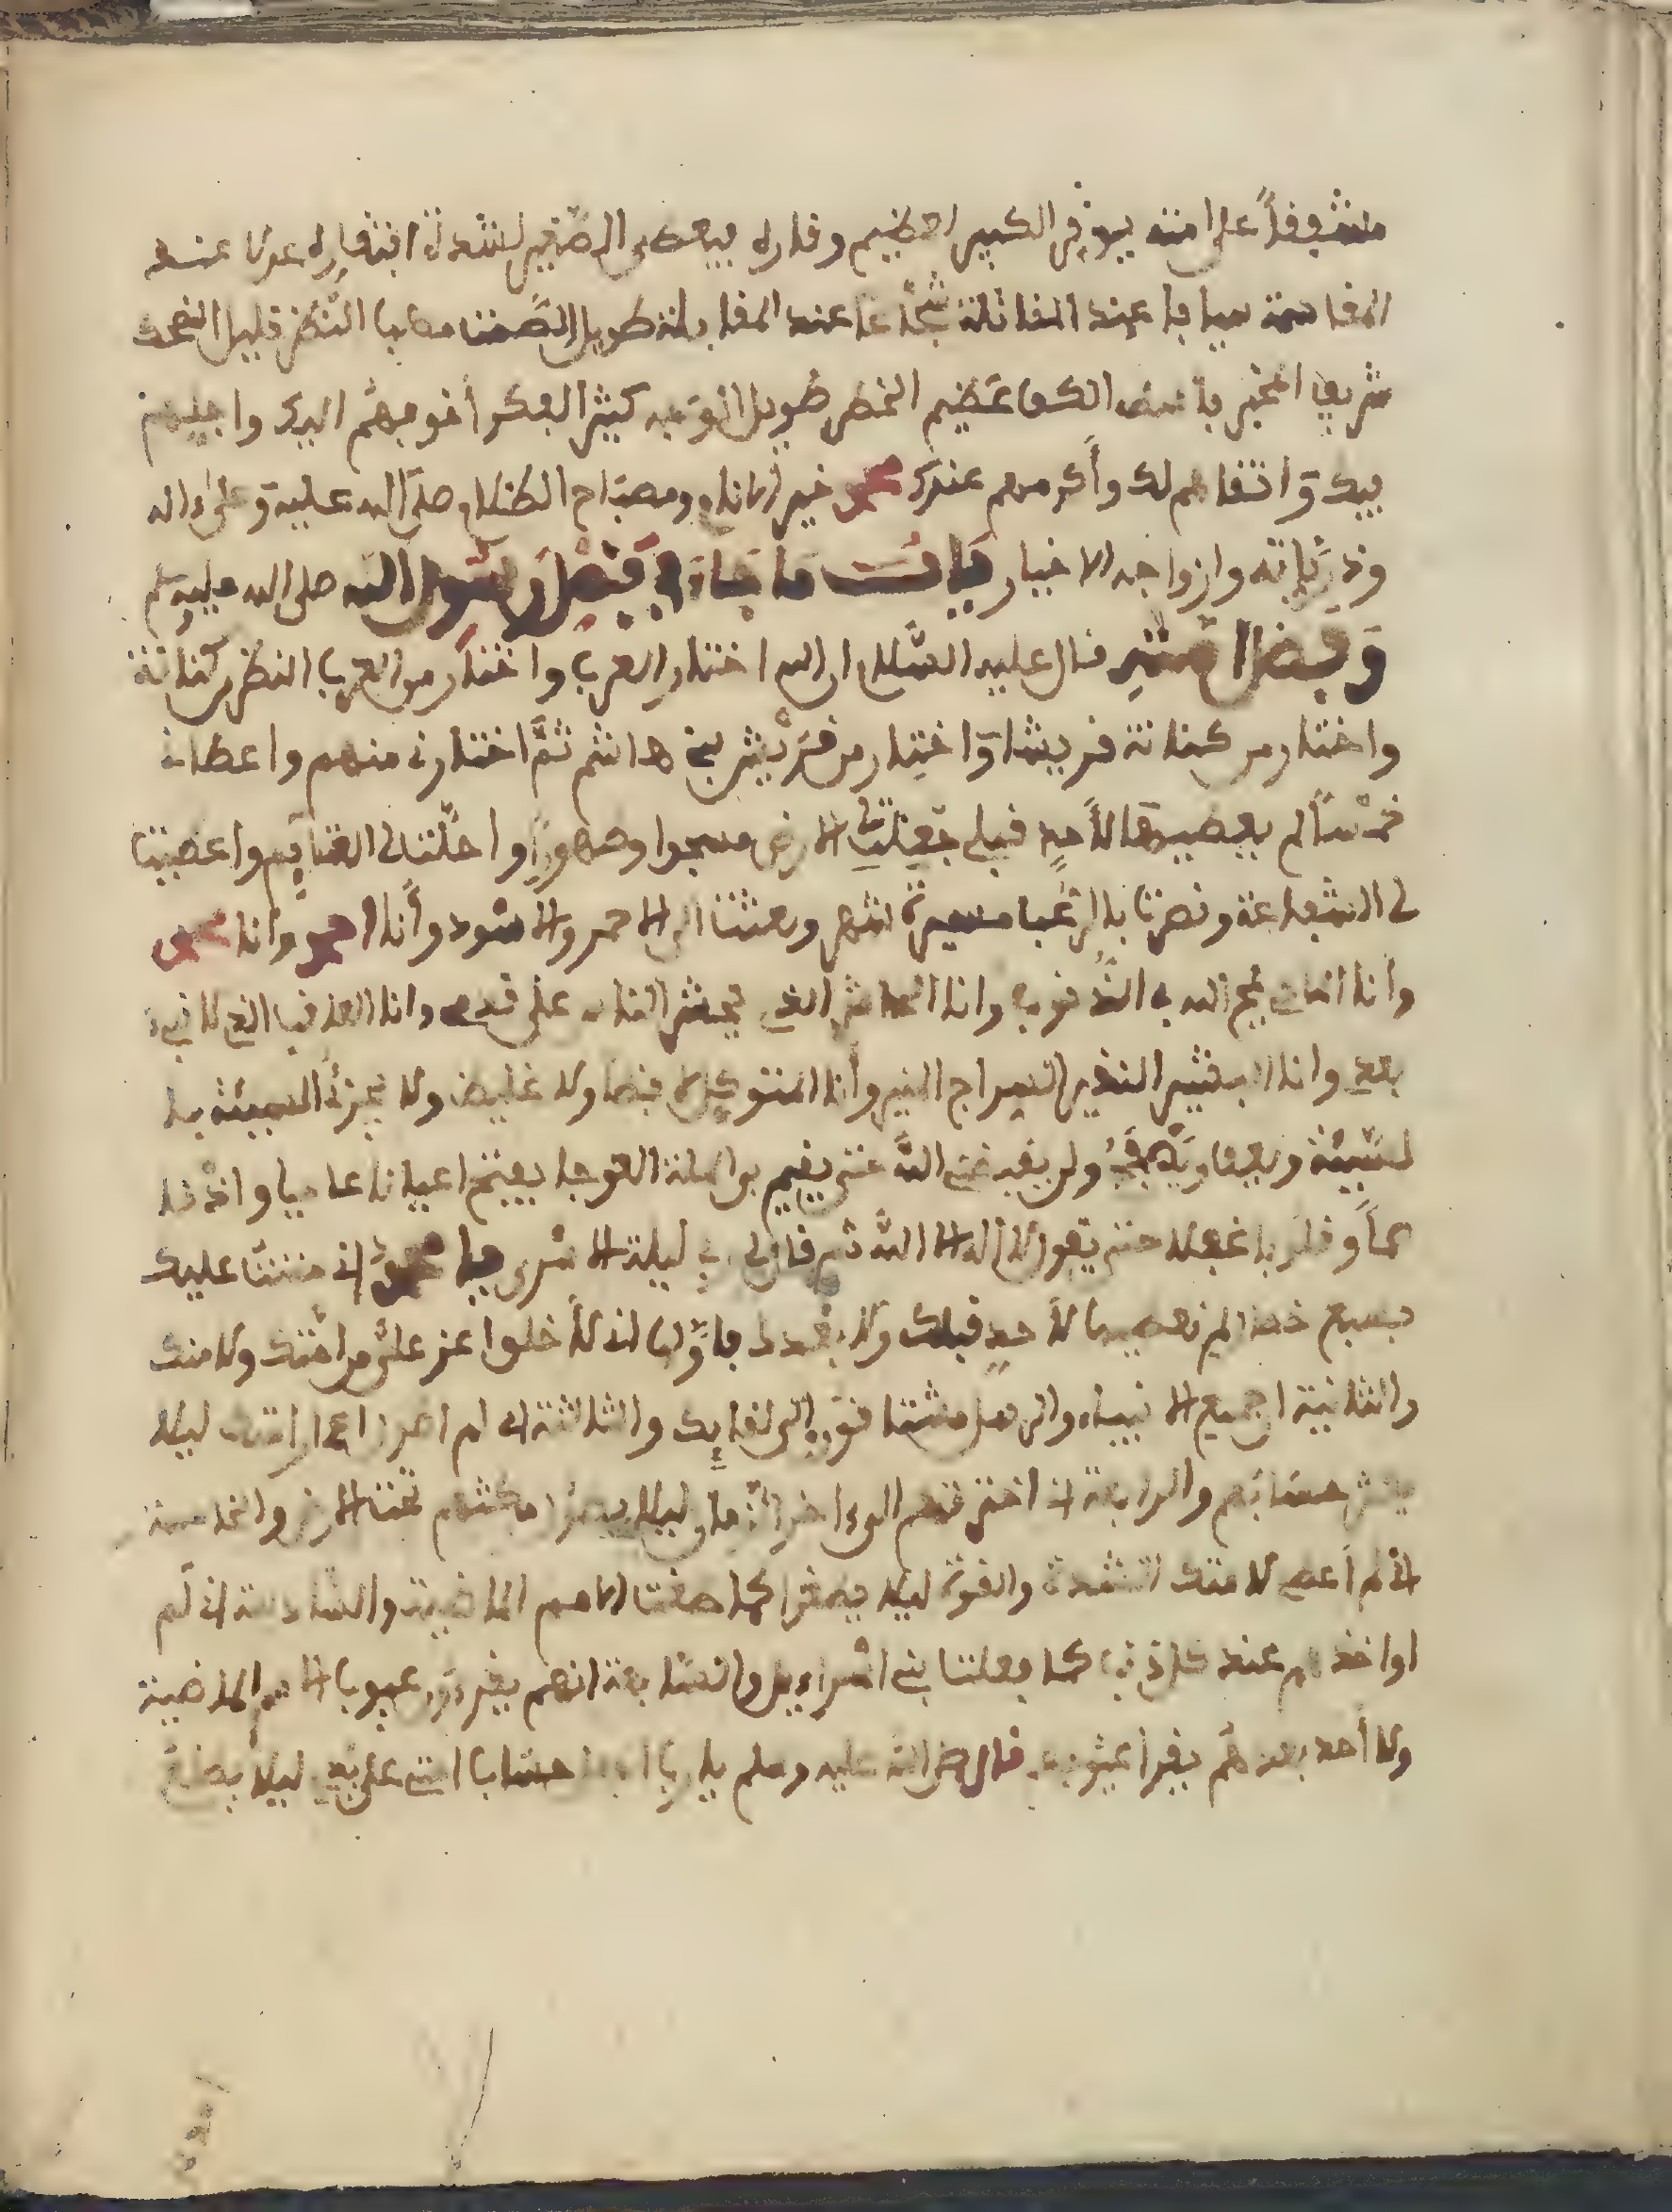 مشفوفا على امته يوفر الكبير لعظيم وقاره ويعطى الصغير لشدة افتقاره عدلا عند
المقاسمة سيابا عند المقاتلة شجاعا عند المقابلة طويل الصمت مصيبا النظر قليل الضحك
شريف المخبر باسط الكف عظيم الخطر طويل كثير الفكر أخوجهم اليك واحبهم
بيك واتقاهم لك وأكرمهم عندك محمد خير الانام ومصباح الظلام صلى الله عليه وعلى ءاله
وذريته وازواجه الاخيار باب ما جاء في فضل رسول الله صلى الله عليه وسلم
وفضل امته قال عليه السلام ان الله اختار العرب واختار من العرب النظر كنانة
واختار من كنانة فريشا واختار من قريش بني هاشم ثم اختارني منهم واعطاني
خمسا لم يعطيها لأحد قبلي جعلت الارض مسجدا وطهورا واحلت لي الغنايم واعطيت
لي الشفاعة ونصرت بالرعب مسيرة شهر وبعثت الى الاحمر والاسود وأنا احمد وانا محمد
وأنا الماحى يمح الله بي الذنوب وانا الحاشر الذي يحشر الناس على قدمي وانا العاقب الذي لا نبيء
بعدي وانا البشير النذير السراج المنير وأنا المتوكل لا فظا ولا غليظ ولا يجزئ السيئة با
لسيئة ويعفوا ويصفح ولن يقبضني الله حتى يقيم بي الملة العوجا يفتح اعيانا عاميا واذانا
صما وقلوبا غلفا حتى يقول لا اله الا الله ثم قال لي في ليلة الاسرى يا محمد اني مننت عليك
بسبع خصال لم نعطيها لأحد قبلك ولا بعدك فاولها اني لم أخلوا اعز علي من امتك ولا منك
والثانية اجميع الانبياء والرسل مشتاقون إلى لقايك والثالثة اني لم امرر اعمار امتك ليلا
يكثر حسابهم والرابعة اني اخترتهم الى ءاخر الزمان ليلا يطول مكثهم تحت الارض والخامسة
اني لم أعط لامتك الشدة والقوة ليلا يطغوا كما طغت الامم الماضية والسادسة اني لم
اواخذهم عند كل ذنب كما فعلت بني اسراءيل والسابعة انهم يقرءون عيوب الامم الماضية
ولا أحد بعدهم يقرأ عيوبهم قال صلى الله عليه وسلم يا رب اجعل حساب امتي على يدي ليلا يطلع